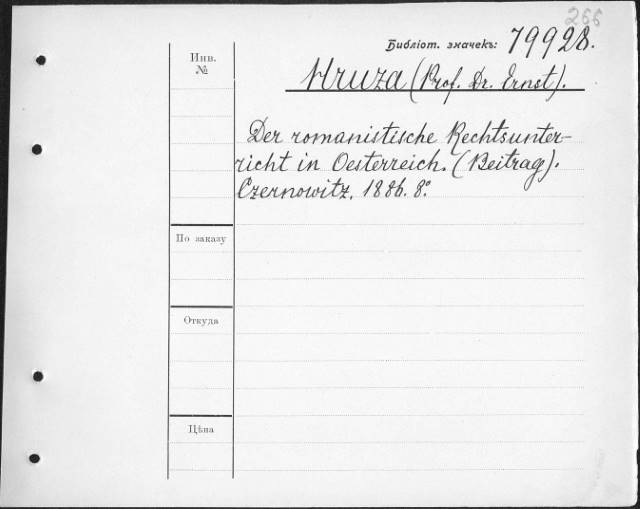 266
Библіот. значекъ: 79928.
Инв.
№
Hruza (Prof. Dr. Ernst).
Der romanistische Rechtsunter-
richt in Oesterreich. (Beitrag).
Czernowitz. 1886. 8º.
По заказу
Откуда
Цѣна